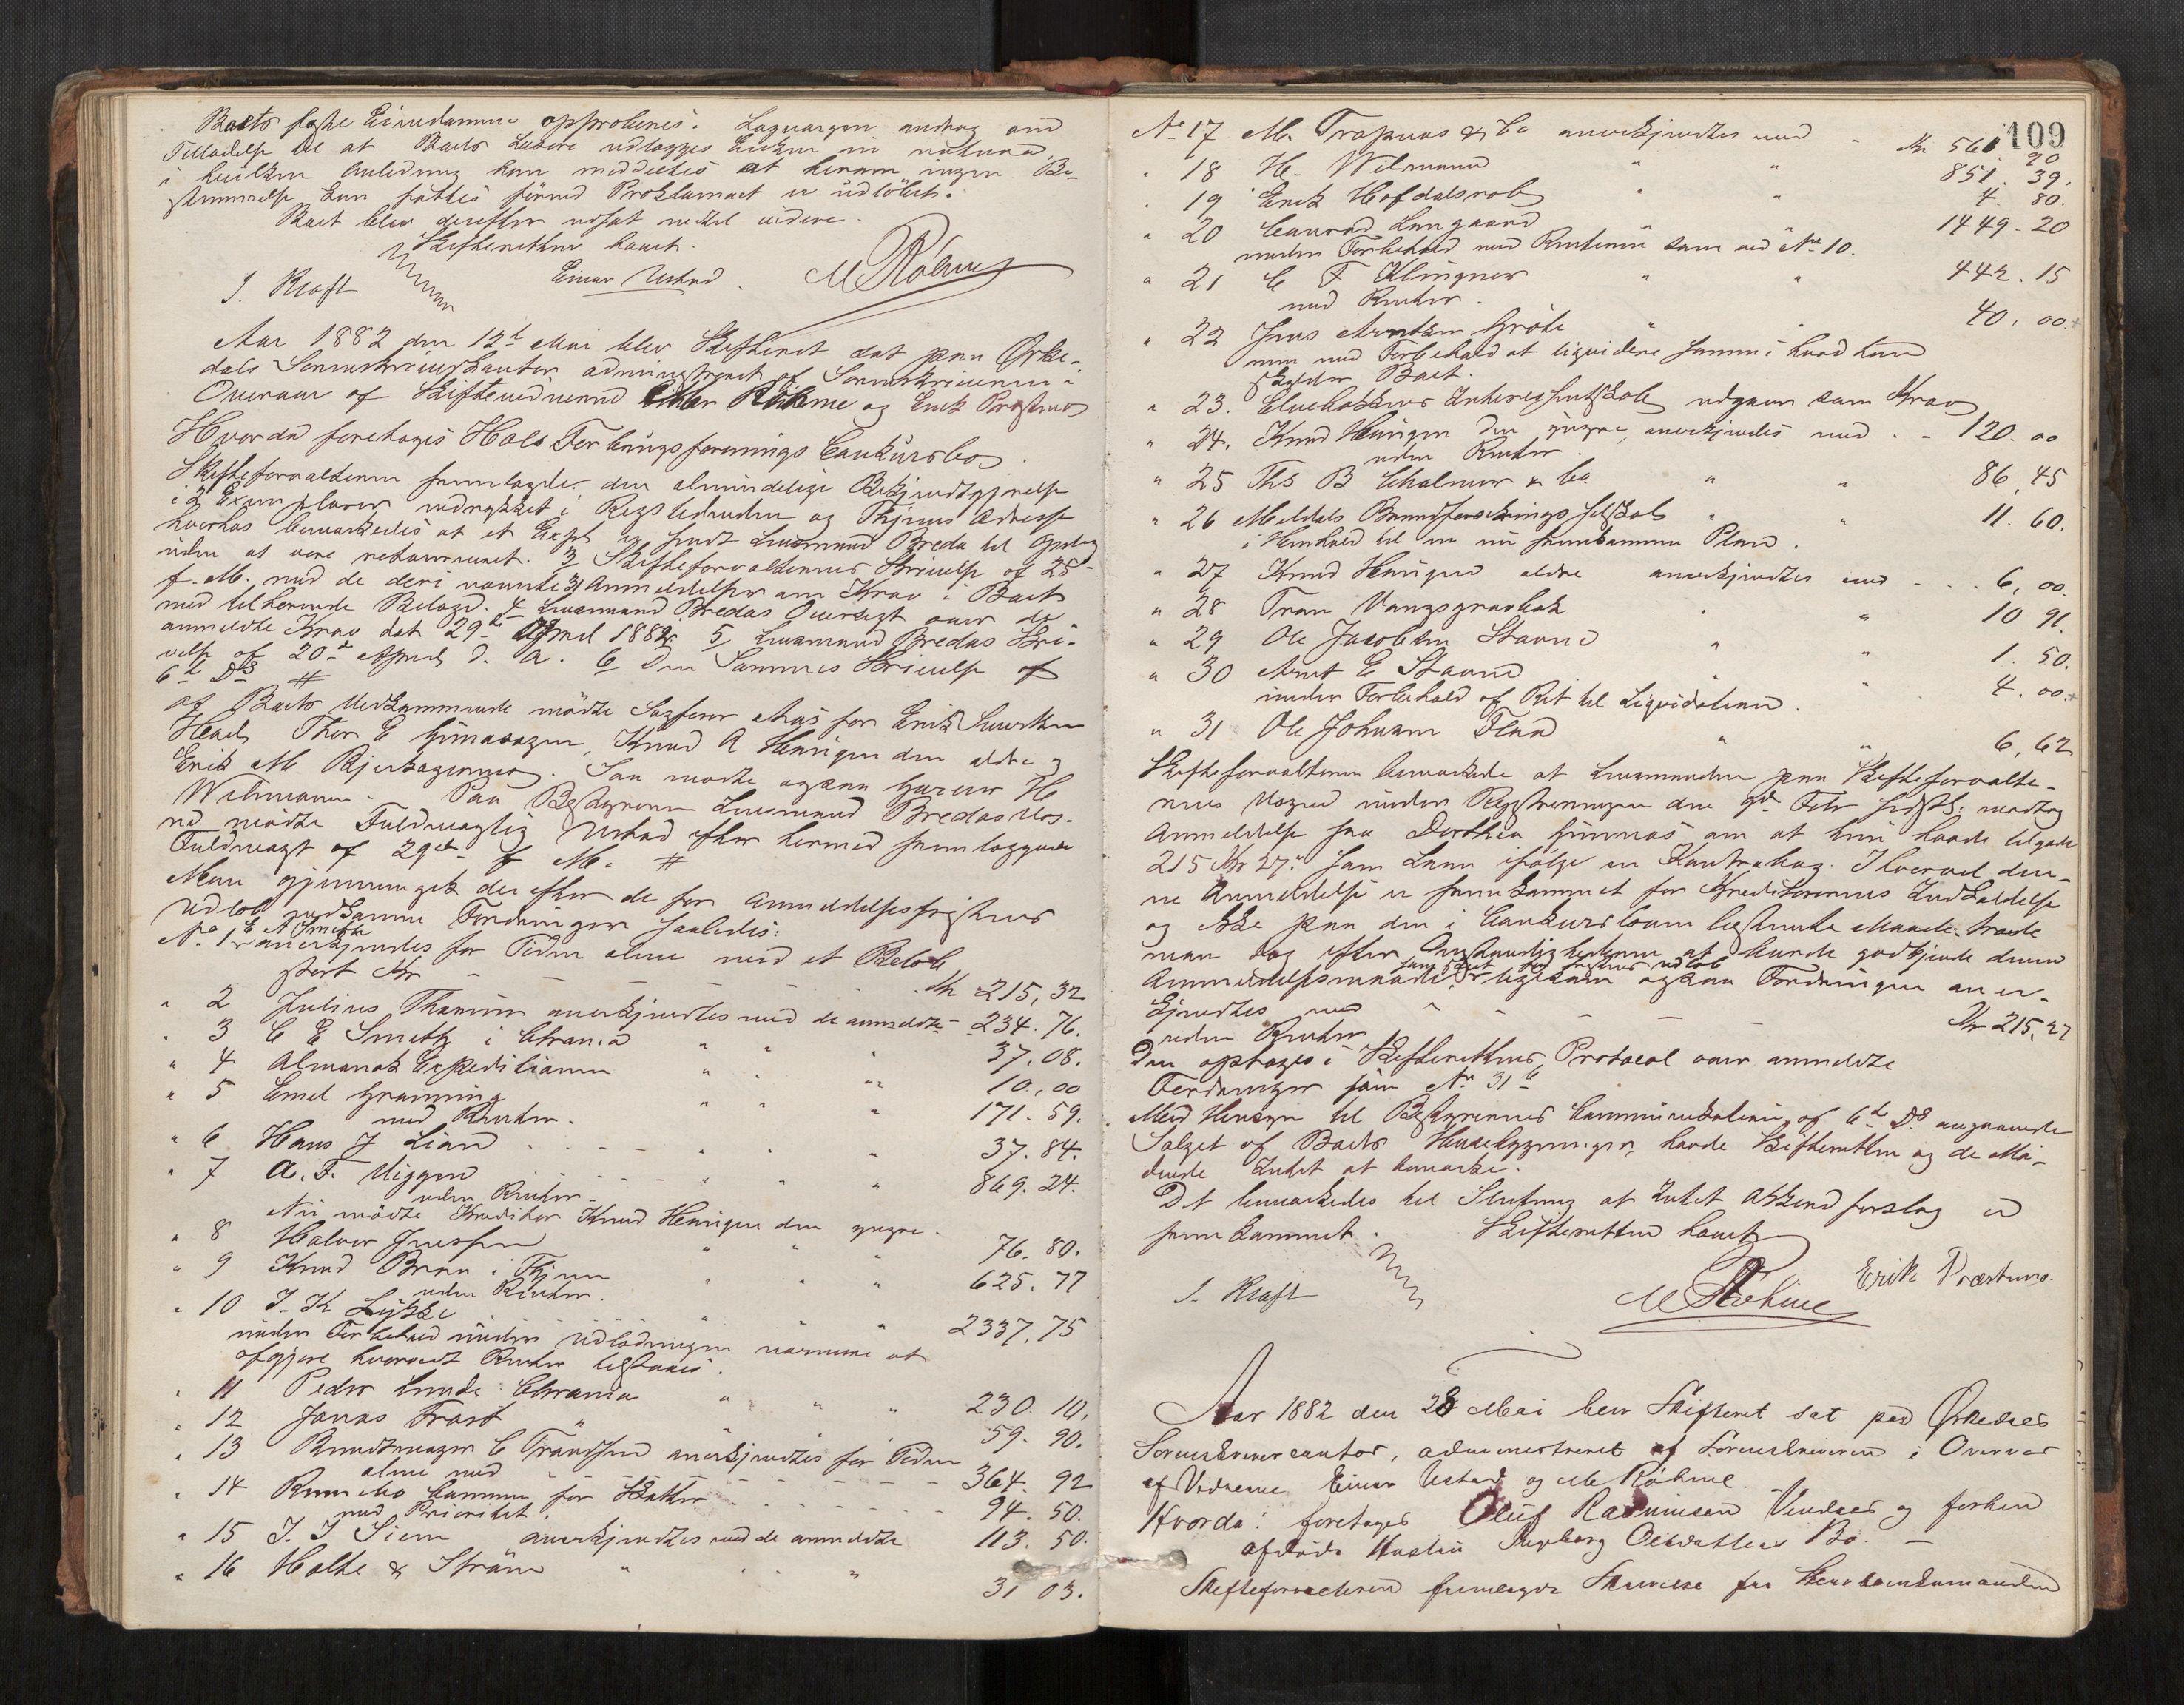 Boets faste Eiendomme approberes. Laugværgen androg om
Tilladelse til at Boets Løsøre udlægges Enken in natura,
i hvilken Anledning ham meddeeltes at herom ingen Be-
stemmelse kan fattes førend Proklamaet er udløbet.
Boet blev derefter udsat indtil videre.
Skifteretten hævet.
I. Kraft Einar Ustad M Röhme
Aar 1882 den 12te Mai blev Skifteret sat paa Ørke-
dals Sorenskrivercontor administreret af Sorenskriveren i
Overvær af Skiftevidnerne Röhme og Erik Præsthus
Hvorda foretoges Hols Forbrugsforenings Concursbo.
Skifteforvalteren fremlagde: den almindelige Bekjendtgjørelse
i 2 Exemplarer indrykket i Rigstidenden og Thjems Adresse
hvorhos bemærkedes at et Expl er sendt Lensmand Bredo til Opslag
uden at være retourneret. 3, Skifteforvalterens Skrivelse af 25de
f. M. med de deri nævnte 31 Anmeldelser om Krav i Boet
med tilhørende Belæg. 4 Lensmand Bredos Oversigt over de
anmeldte Krav dat 29de April 1882. 5, Lensmand Bredos Skri-
velse af 20de April d. A. 6 Den Sammes Skrivelse af
6te Ds #
Af Boets Vedkommende mødte Sagfører Aas for Erik
Thor E Grinasagen, Knud A Henrigsen den ældre og
Erik M Bjerkagernes. Saa mødte ogsaa H
Wilmann. Paa Bestyreren Lensmand Bredos Veg-
ne mødte Fuldmægtig Ustad efter hermed fremlaggende
Fuldmagt af 29de f. M. #
Man gjennemgik derefter de før Anmeldelsesfristens
Udløb indkomne Fordringer saaledes:
No. 1 anerkjendes for Tiden alene med et Beløb
stort Kr - - - Kr 215,32
" 2 Julius Thorin anerkjendtes med de anmeldte - 234. 76.
" 3 C E Smith i Chrania " " " 37. 08.
" 4 Almanak Expeditionen " " " 10, 00
" 5 Emil Gramming " " " 171. 59.
med Renter.
" 6 Hans J Lian - - - " " 37. 84.
" 7 A. F. Viggen - - - " " 869. 24.
uden Renter.
Nu mødte Kreditor Knud Henrigsen den yngre.
" 8 Halvor Jensen " " " 76. 80.
" 9 Knud Bran i Thjem " " " 625. 77
uden Renter.
" 10 I. K Lykke " " " 2337, 75
under Forbehold under Udlodningen nærmere at
afgjøre hvorvidt Renter tilstaaes.
" 11 Peder Lunde Chrania " " " 230. 10.
" 12 Jonas Frost " " " 59. 90.
" 13 Brændtmager C Trandsen anerkjendtes for Tiden
alene med - - - 364. 92
" 14 Rennebo Commune for Skatter - - - 94. 50.
med Prioritet.
" 15 I. I Siem anerkjendtes med de anmeldte 113. 50.
" 16 Holte & Strøm " " " 31 03.
109
No 17 M. Trapnes & Co anerkjendtes med - Kr 561 90
" 18 H. Wilmann " " 851. 39.
" 19 Erik Hofdalsrob " " 4. 80.
" 20 Conrad Langaard 1449 - 20
under Forbehold med Renterne som ved No 10.
" 21 C F Klingner " " 442. 15
med Renter.
" 22 Jens Arntsen Gröte " 40, 00.
men med Forbehold at liquidere samme i hvad han
skylder Boet.
" 23. Interessentskab udgaar som Krav
" 24. Knud Henrigsen den yngre, anerkjendtes med - - 120. 00
uden Renter.
" 25 Ths B Chalmer & Co " " 86, 45
" 26 Meldals Brandforsikrings Selskab " " 11. 60.
i Henhold til en nu fremkommen Plan.
" 27 Knud Henrigsen ældre anerkjendtes med - - - 6, 00.
" 28 Tran Vangsgravbak " " 10 91.
" 29 Ole Jacobsen Stavne " " 1. 50.
" 30 Arnt E Stavne " 4. 00.
under Forbehold af Ret til Liquidation.
" 31 Ole Johnsen Flaa " " 6, 62
Skifteforvalteren bemærkede at Lensmanden paa Skifteforvalte-
rens Vegne under Registreringen den 9de Febr sidstl. modtog
Anmeldelse fra Dorthea Grinnæs om at hun havde tilgode
215 Kr 27 som Løn ifølge en Kontrabog. Ihvorvel den-
ne Anmeldelse er fremkommet før Kreditorernes Indkaldelse
og ikke paa den i Concursloven bestemte Maade, troede
man dog efter Omstændighederne at kunde godkjende denne
Anmeldelsesmaade, som skeet før Fristens Udløb ligesom ogsaa Fordringen aner-
kjendtes med - - - Kr 215, 27
uden Renter.
Den optages i Skifterettens Protocol over anmeldte
Fordringer som No 31b
Med Hensyn til Bestyrerens Communikation af 6te Ds angaaende
Salget af Boets Husebygninger, havde Skifteretten og de Mø-
dende Intet at bemærke.
Det bemærkedes til Slutning at Intet Akkordforslag er
fremkommet. Skifteretten hævet
I. Kraft M Röhme Erik Præsthus.
Aar 1882 den 23 Mai blev Skifteret sat paa Ørkedals
Sorenskrivercontor, administreret af Sorenskriveren i Overvær
af Vidnerne Einar Ustad og M Röhme.
Hvorda: foretoges Oluf Rasmussen Vindaes og forhen
afdøde Hustru Ingeborg Olsdatters Bo. -
Skifteforvalteren fremlagde Skrivelse fra